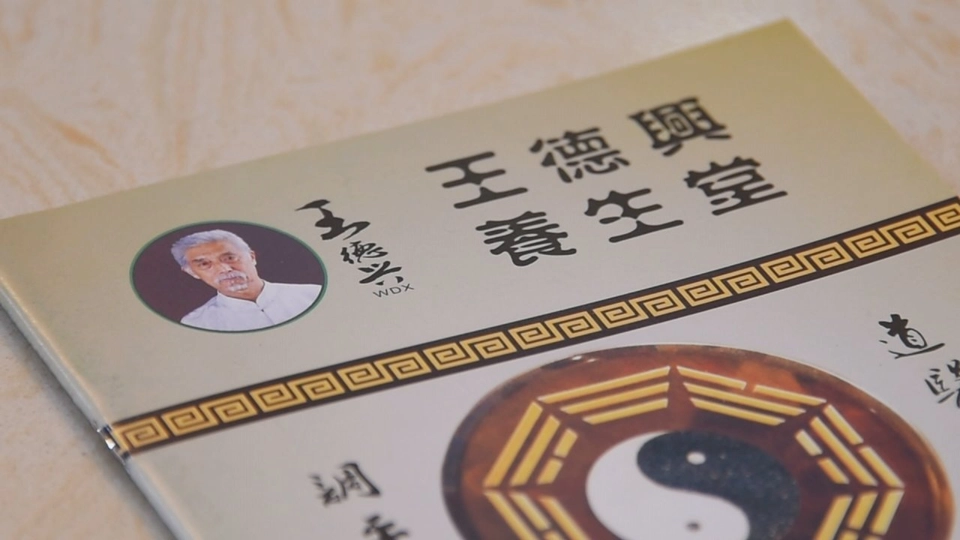 王德興
養生堂
王德兴
WDX
道醫
調